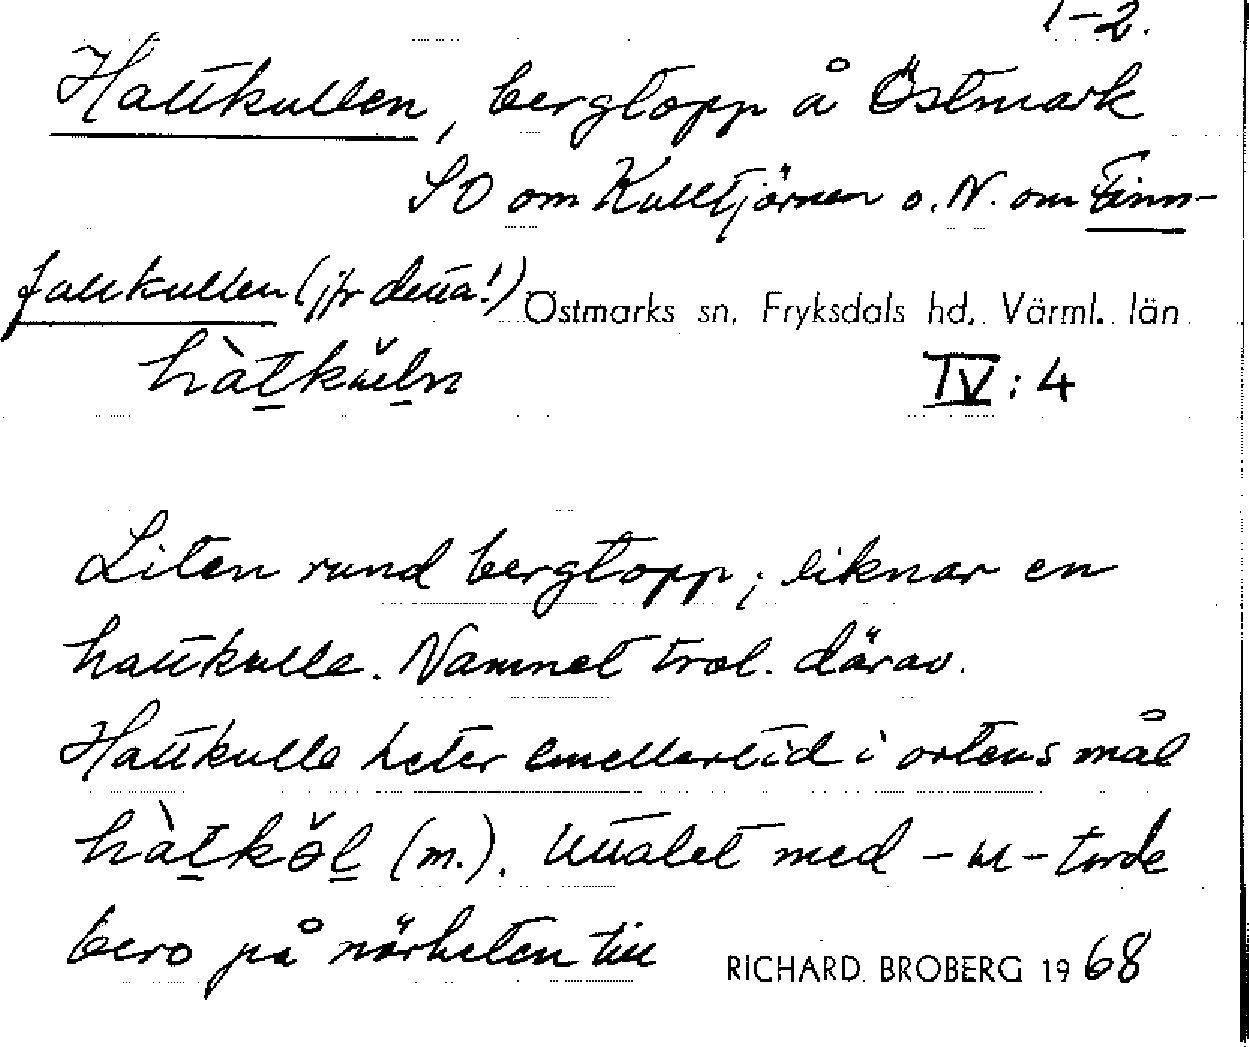 1-2.
Hattkullen, bergtopp å Östmark
SO om Kulltjärnen o. N. om Finn-
faltkullen (jfr detta!) Östmarks sn. Fryksdals hd. Värml. län
hàtkŭln IV:4
Liten rund bergtopp; liknar en
hattkulle. Namnet trol. därav.
Hattkulle heter emellertid i ortens mål
hàtkŏl (m.). Uttalet med -u- torde
bero på närheten till RICHARD BROBERG 1968